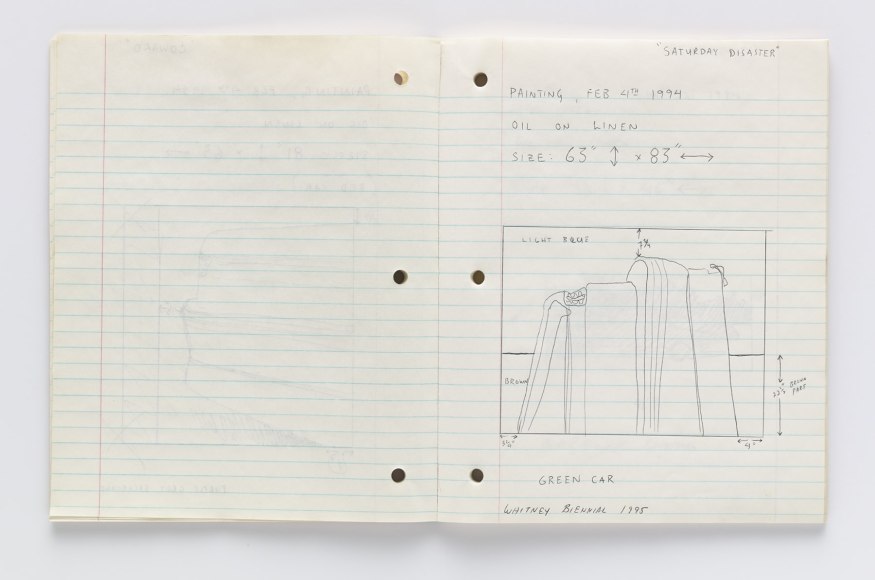 "SATURDAY DISASTER"
PAINTING, FEB 4TH 1994
OIL ON LINEN
SIZE: 63" ↕ x 83" ↔
LIGHT BLUE
BROWN
BROWN
PART
4"
GREEN CAR
WHITNEY BIENNIAL 1995